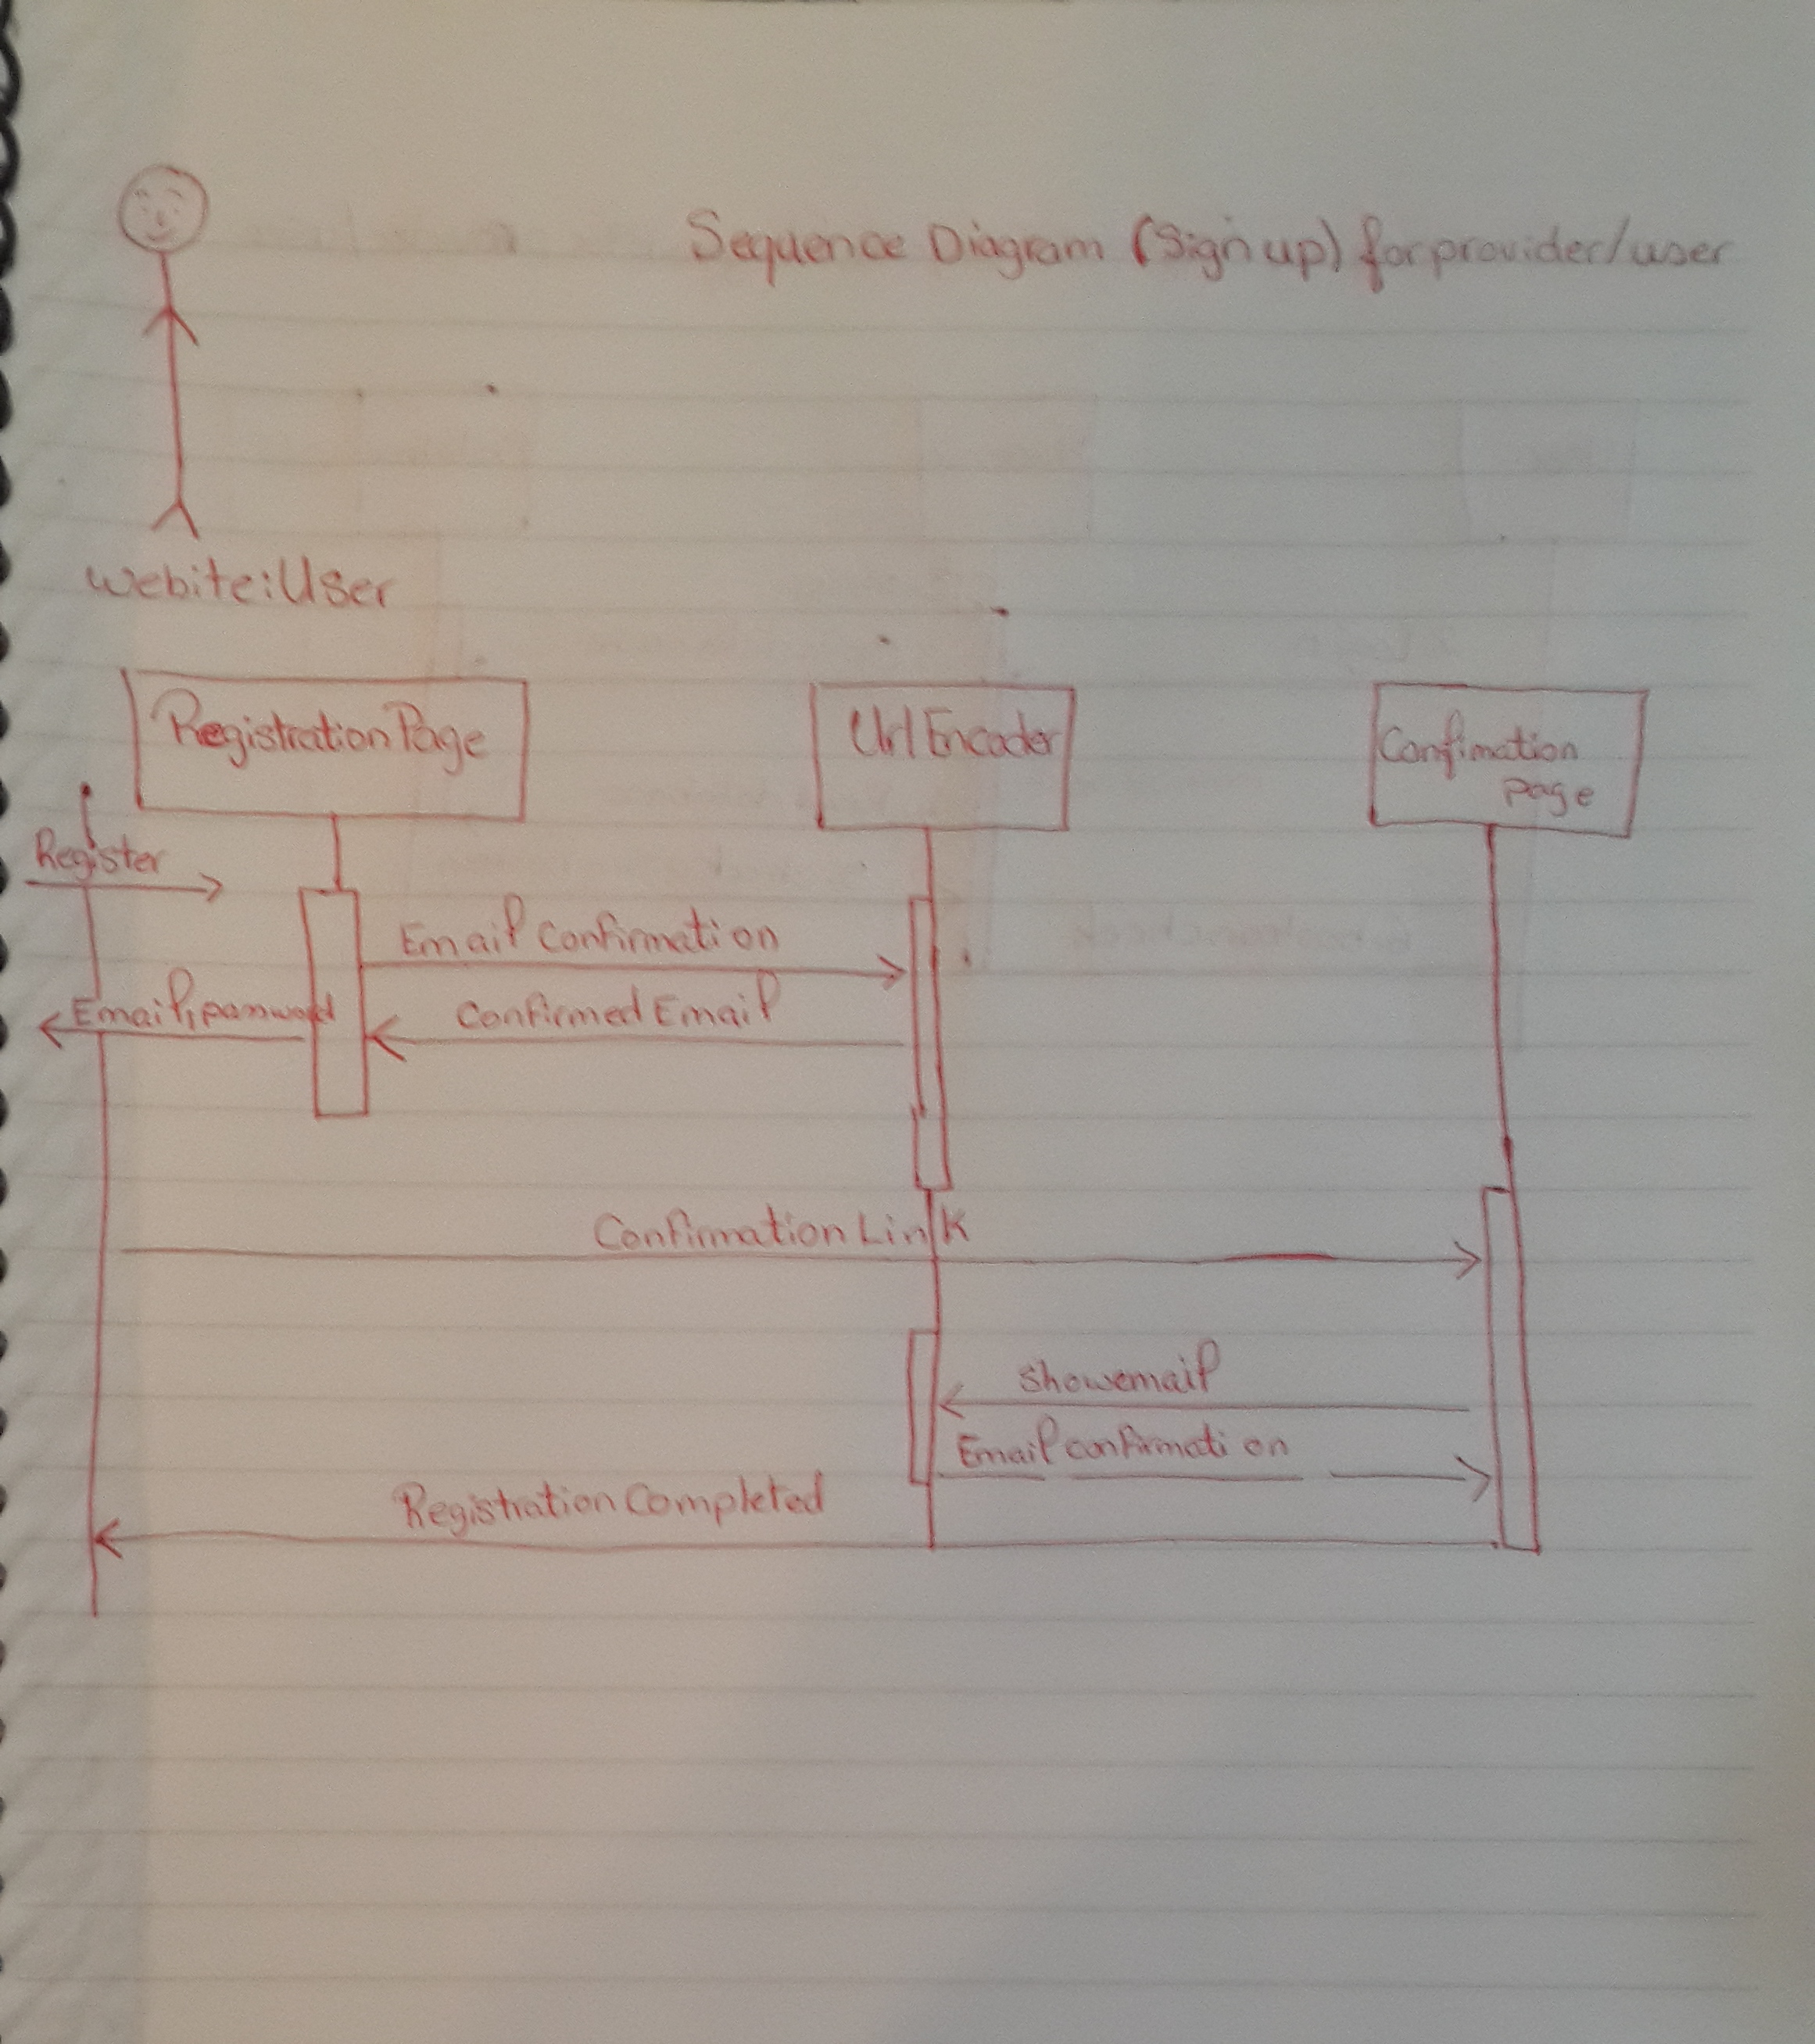 Sequence Diagram (Sign up) for provider/user
webite:User
Registration Page
Url Encoder
Confimation
page
Register
Email Confirmation
Email, password
Confirmed Email
Confirmation Link
showemail
Email confirmation
Registration Completed